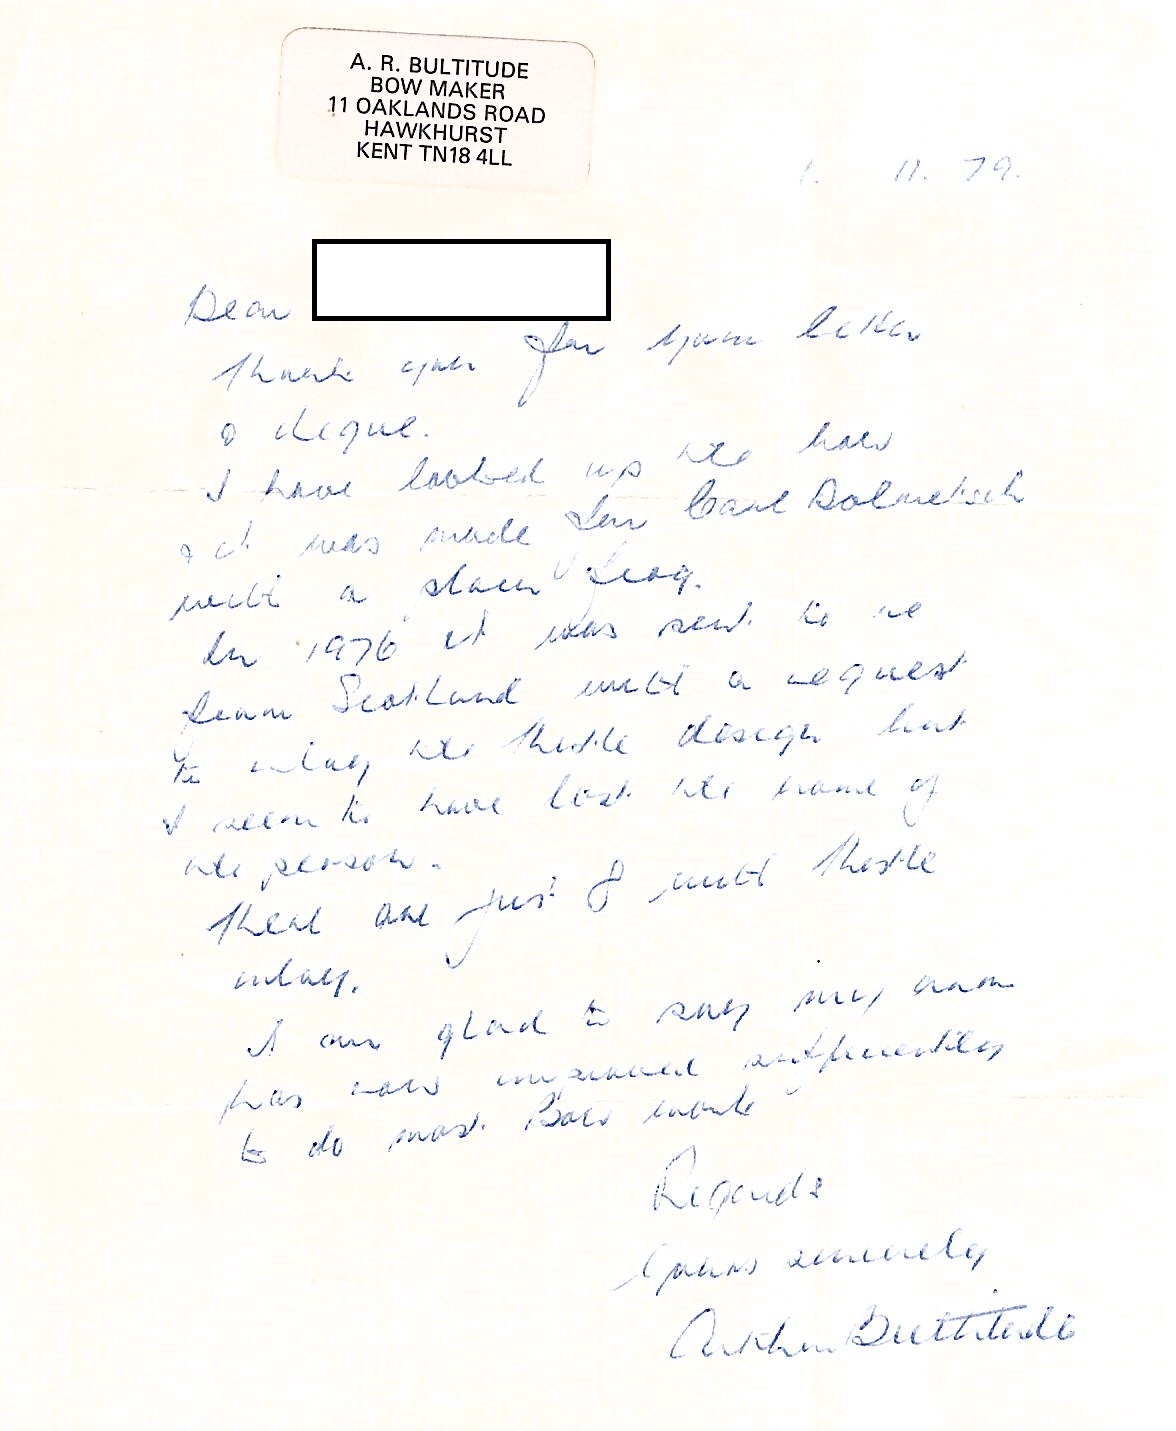 A. R. BULTITUDE
BOW MAKER
11 OAKLANDS ROAD
HAWKHURST
KENT TN18 4LL
1. 11. 79.
Dear
Thank you for your letter
& cheque.
I have looked up the bow
& it was made for Carl Dolmetsch
with a plain frog.
In 1976 it was sent to me
from Scotland with a request
to inlay the thistle design but
I seem to have lost the name of
the person.
There are just 8 with thistle
inlay.
I am glad to say my arm
has now improved sufficiently
to do most Bow work
Regards
Yours sincerely
Arthur Bultitude